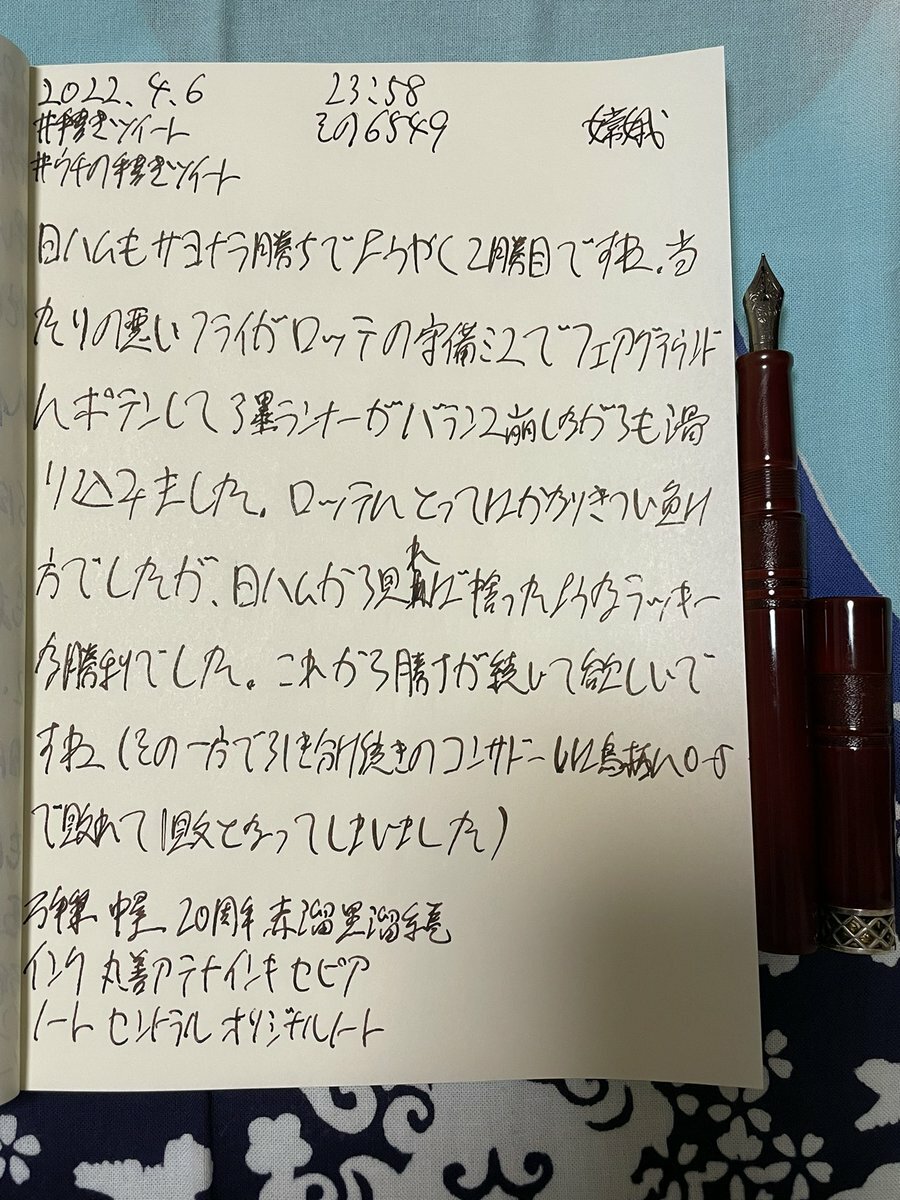 2022.4.6 23:58
#手書きツイート その6549 嫦娥
#ウチの手書きツイート
日ハムもサヨナラ勝ちでようやく2勝目ですね。当
たりの悪いフライがロッテの守備ミスでフェアグラウンド
にポテンして3塁ランナーがバランス崩しながらも滑
り込みました。ロッテにとってはかなりきつい負け
方でしたが、日ハムから見れば拾ったようなラッキー
な勝利でした。これから勝ちが続いて欲しいで
すね(その一方で引き分け続きのコンサドーレは鳥栖に0-5
で敗れて1敗となってしまいました)
中屋 20周年 赤溜黒溜
インク 丸善アテナインキ セピア
ノート セントラル オリジナルノート